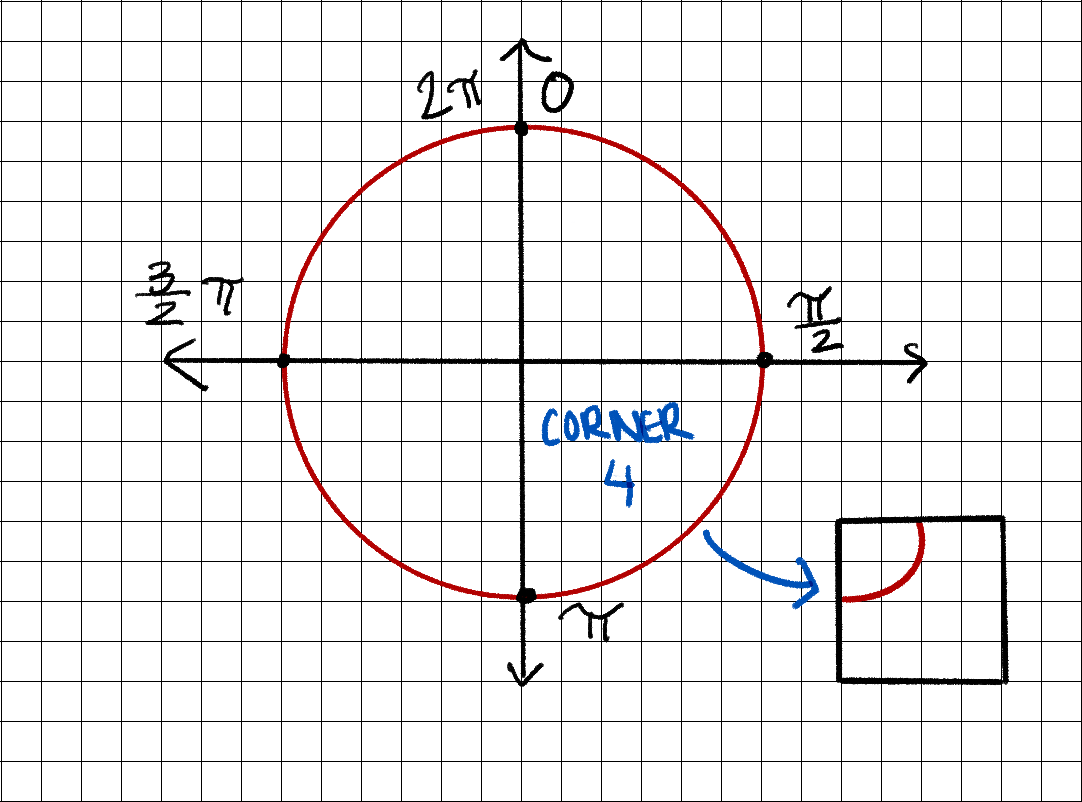 2π 0
3/2 π
π/2
CORNER
4
π